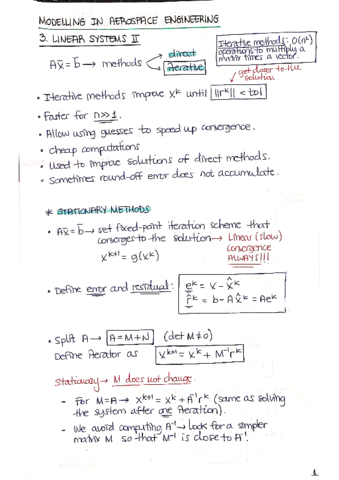 MODELLING IN AEROSPACE ENGINEERING
3. LINEAR SYSTEMS II
Ax̄ = b̄ → methods < direct
iterative
Iterative methods: O(n²)
operations to multiply a
matrix times a vector.
get closer to the
solution
• Iterative methods improve x^k until ||r^k|| < tol
• Faster for n>>1.
• Allow using guesses to speed up convergence.
• Cheap computations
• Used to improve solutions of direct methods.
• Sometimes round-off error does not accumulate.
* STATIONARY METHODS
• Ax̄ = b̄ → set fixed-point iteration scheme that
converges to the solution → Linear (slow)
convergence
ALWAYS!!!
x^{k+1} = g(x^k)
• Define error and residual: e^k = x - x̂^k
r̂^k = b - Ax̂^k = Ae^k
• Split A → A = M+N (det M ≠ 0)
Define iterator as x^{k+1} = x^k + M⁻¹r^k
Stationary → M does not change.
- For M=A → x^{k+1} = x^k + A⁻¹r^k (same as solving
the system after one iteration).
- We avoid computing A⁻¹ → look for a simpler
matrix M so that M⁻¹ is close to A⁻¹.
1